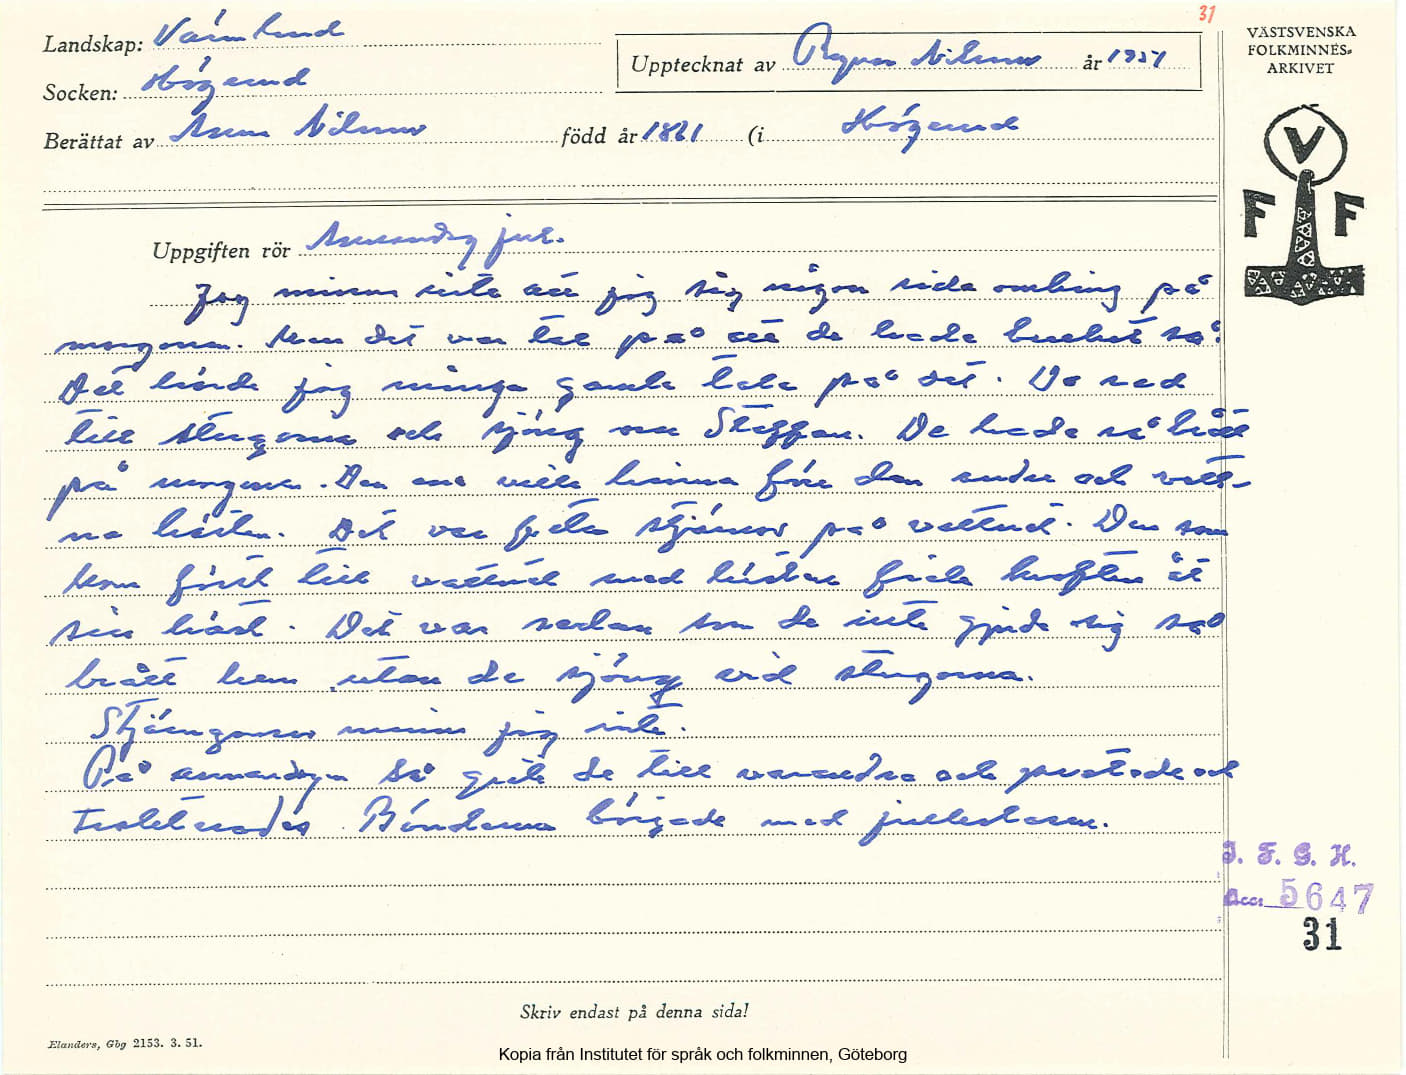 31
VÄSTSVENSKA
FOLKMINNES-
ARKIVET
Landskap: Värmland
Upptecknat av Ragnar Nilsson år 1951
Socken: Högerud
Berättat av Nilsson född år 1861 (i Högerud
V F F
Uppgiften rör Annandag jul.
Jag minns inte att jag såg någon rida omkring på
morgonen. Men det var tal på att de hade brukat så.
Det hörde jag många gamla tala på det. De red
till stugorna och sjöng om Staffan. De hade så brått
på morgonen. Den ene ville hinna före den andre och vatt-
na hästen. Det var fula stjärnor på vattnet. Den som
kom först till vattnet med hästen fick kraften åt
sin häst. Det var sedan som de inte gjorde sig så
brått hem utan de sjöng vid stugorna.
Stjärngossar minns jag inte.
På annandagen så gick de till varandra och pratade och
trakterades. Bönderna började med julkalasen.
I. F. G. H.
Acc: 5647
31
Skriv endast på denna sida!
Elanders, Gbg 2153. 3. 51.
Kopia från Institutet för språk och folkminnen, Göteborg